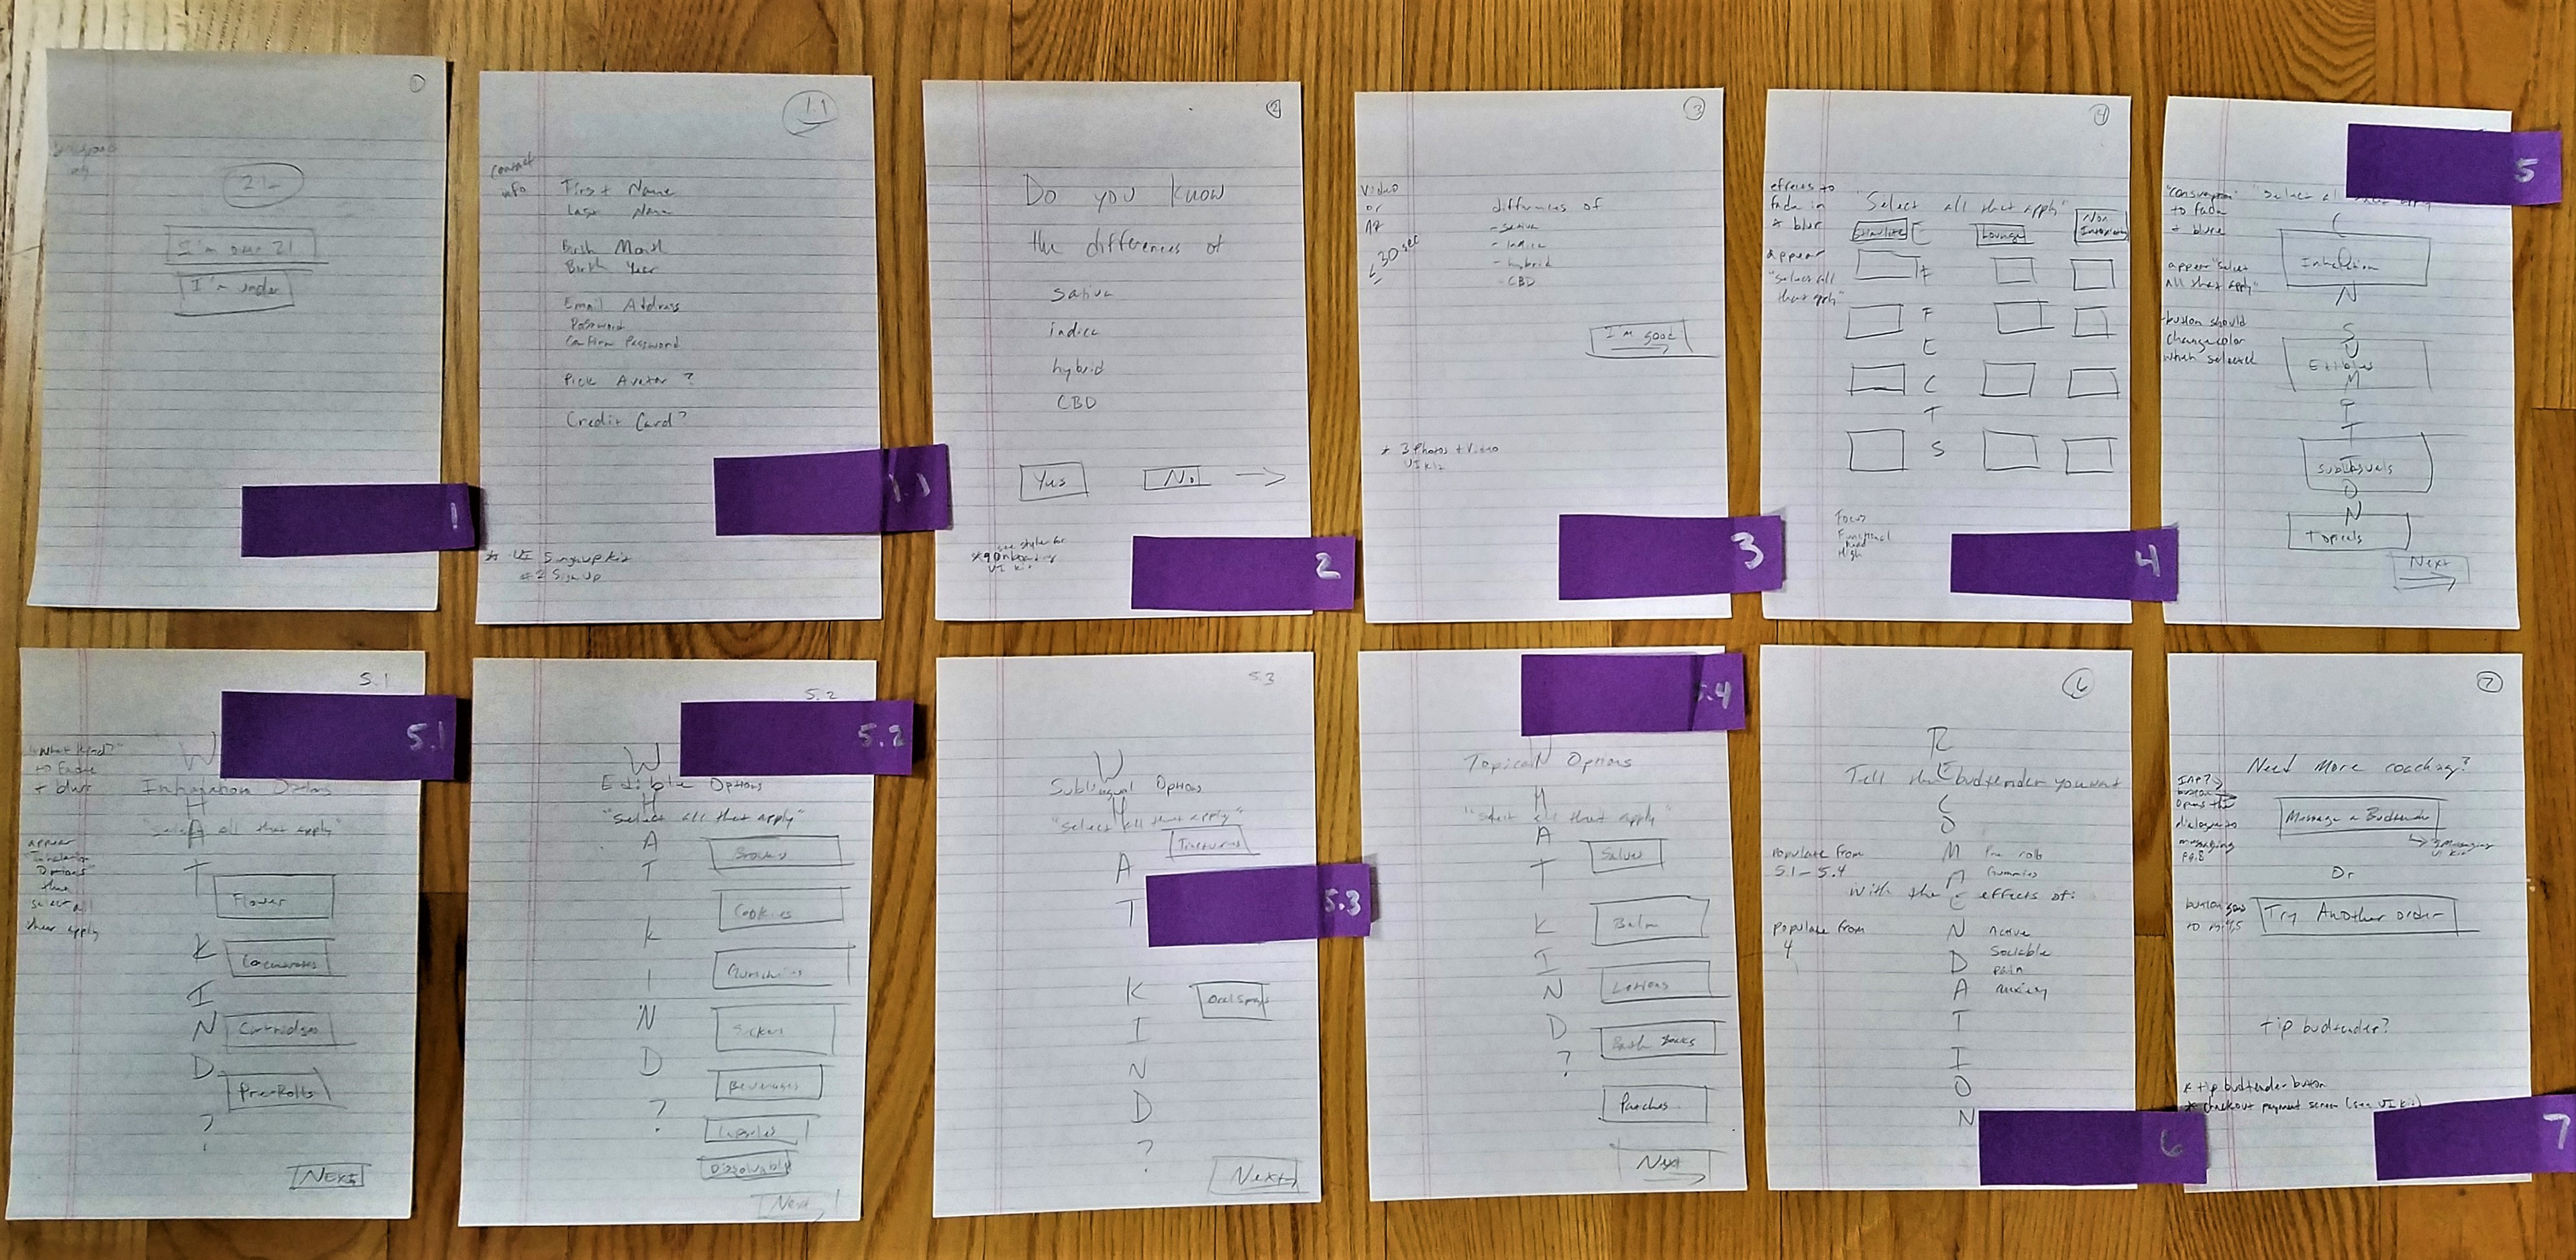 1
21+
I'm over 21
I'm under
1
1.1
contact
info
First Name
Last Name
Birth Month
Birth Year
Email Address
Password
Confirm Password
Pick Avatar ?
Credit Card?
1.1
* UI Signup Kit
#2 Sign Up
2
Do you know
the differences of
Sativa
indica
hybrid
CBD
Yes
No
see style for
onboarding
UI Kit
2
3
Video
or
≤ 30 sec
differences of
- Sativa
- Indica
- hybrid
- CBD
I'm good
* 3 Photos + Video
UI Kit
3
4
effects to
fade in
+ blur
appear
"select all
that apply"
"Select all that apply"
Lounge
Non
E
F
F
E
C
T
S
Focus
Functional
Head
High
4
5
"consumption"
to fade
+ blure
appear "select
all that apply"
- button should
change color
when selected
"select all
C
Inhalation
N
S
U
Edibles
M
P
T
I
Sublinguals
O
N
Topicals
Next
5
5.1
5.1
"What kind?"
to fade
+ blur
appear
"Inhalation
Options"
then
select all
that apply
W
Inhalation Options
H
"Select all that apply"
A
T
Flower
K
I
N
Cartridges
D
Pre-Rolls
?
Next
5.2
5.2
W
Edible Options
H
"Select all that apply"
A
T
Cookies
K
I
N
D
Beverages
?
Capsules
Dissolvable
Next
5.3
W
Sublingual Options
H
"Select all that apply"
Tinctures
A
T
5.3
K
Oral Sprays
I
N
D
?
Next
5.4
W
Topical Options
H
"Select all that apply"
A
Salves
T
K
Balm
I
N
Lotions
D
?
Patches
Next
6
R
Tell the budtender you want
E
C
O
populate from
5.1-5.4
M
Pre rolls
M
Gummies
with the effects of:
E
populate from
4
N
Active
Sociable
D
pain
A
anxiety
T
I
O
N
6
7
Need More coaching?
button
opens the
dialogue to
messaging
pg.8
Message a Budtender
Messaging
UI Kit
Or
button goes
to
Try Another order
tip budtender?
* tip budtender button
* checkout payment screen (see UI kit)
7